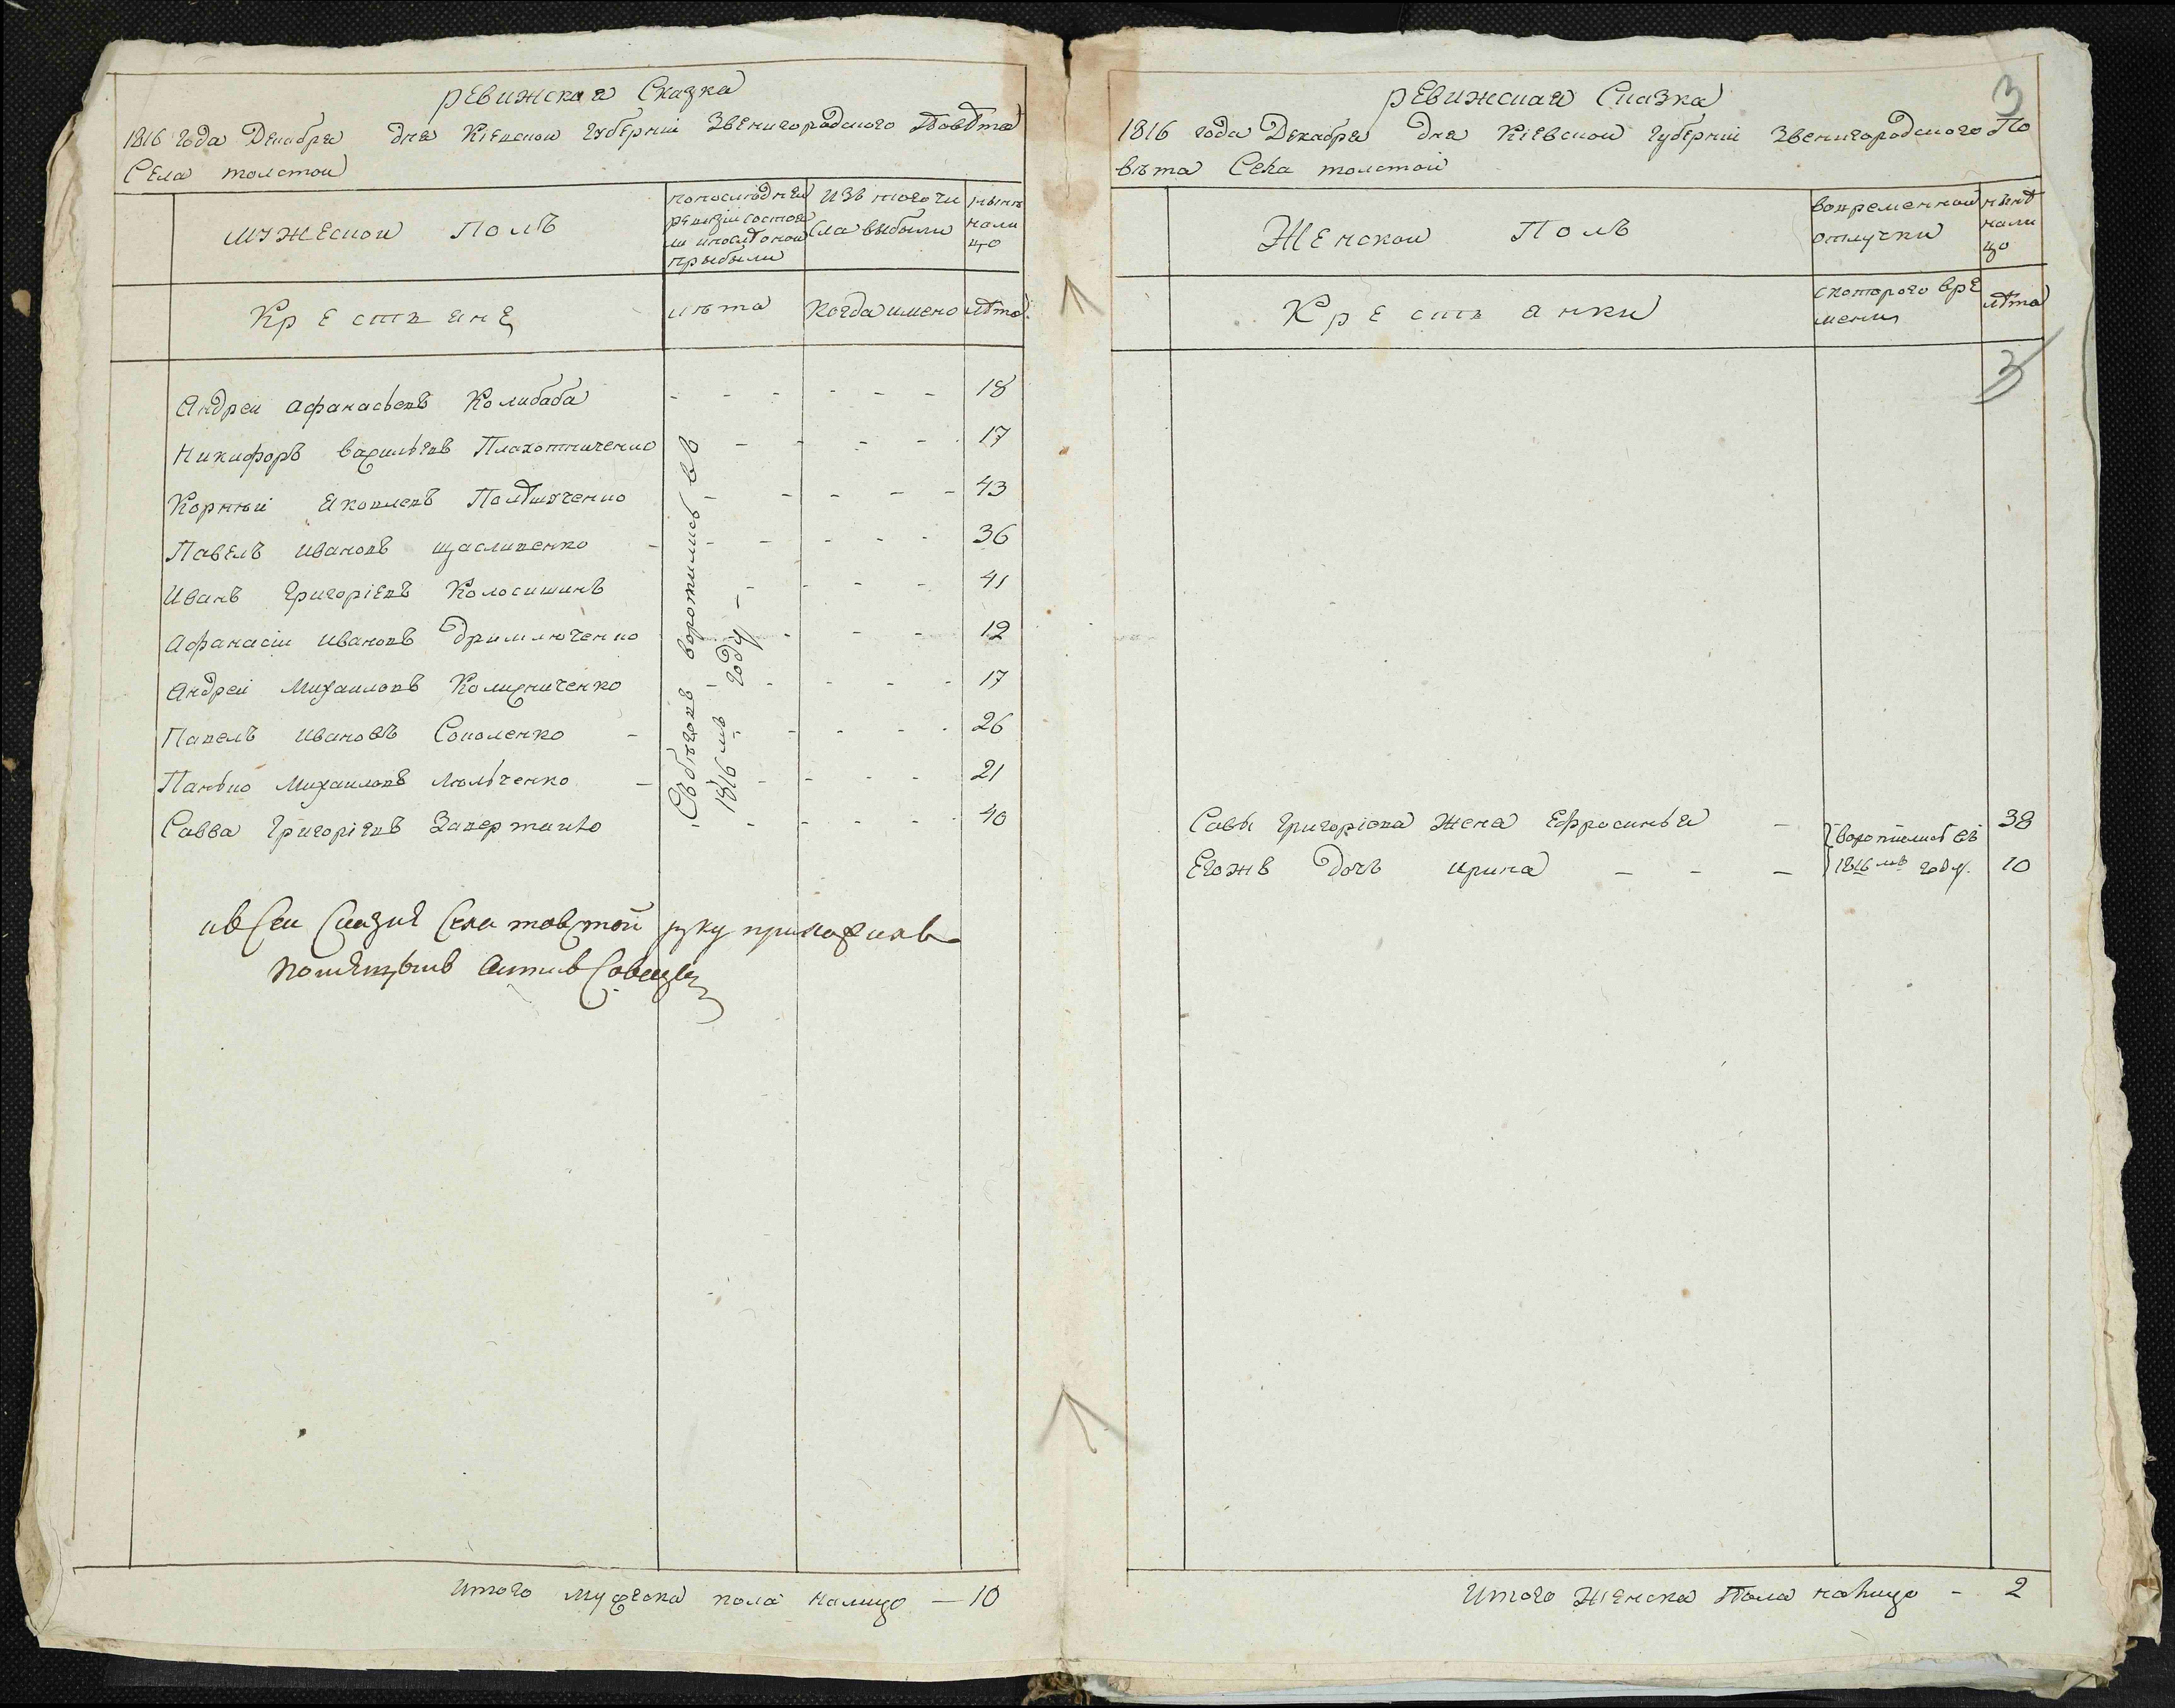 ревижская Сказка
1816 года Декабря дня Кіевской губерніи Звенигородского Повѣта
Села толстой
мужеской Полъ
попослюдней ревизіи состояли ипослѣ оной прыбыли
изъ того числа выбыли
нынѣ налицо
Крестъяне
лѣта
Когда имено
лѣта
Андрей Афанасьевъ Колибаба - - - - - - 18
Никифоръ василіевъ Плахотниченко - - - - 17
Корній Яковлевъ - - - - - 43
Павелъ ивановъ щасливенко - - - - - - 36
Иванъ григоріевъ Колосишинъ - - - - 41
Афанасіи ивановъ дримлюченко - - - 12
Андрей михаиловъ Колисниченко - - - - - 17
Павелъ ивановъ Соколенко - - - - - 26
Панько михаиловъ люльченко - - - - - 21
Савва григоріевъ - - - - - 40
Сбѣговъ воротились въ
1816 мъ году -
Сей Сказки Села товстой руку приложилъ
итого мужеска пола налицо - 10
3
ревижская Сказка
1816 года Декабря дня Кіевской губерніи Звенигородского По
вѣта Села толстой
Женской Полъ
вовременной отлучки
нынѣ налицо
Крестъянки
скоторого времени
лѣта
3
Савы григоріева жена Ефросинья - 38
Егожъ дочъ ирина - - - 10
воротились въ
1816 мъ году.
итого Женска Пола налицо - 2